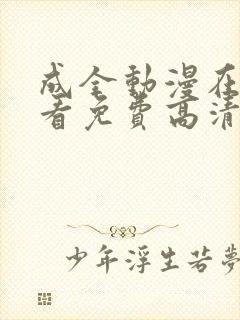 成全動漫在
看免費高清
少年浮生若夢